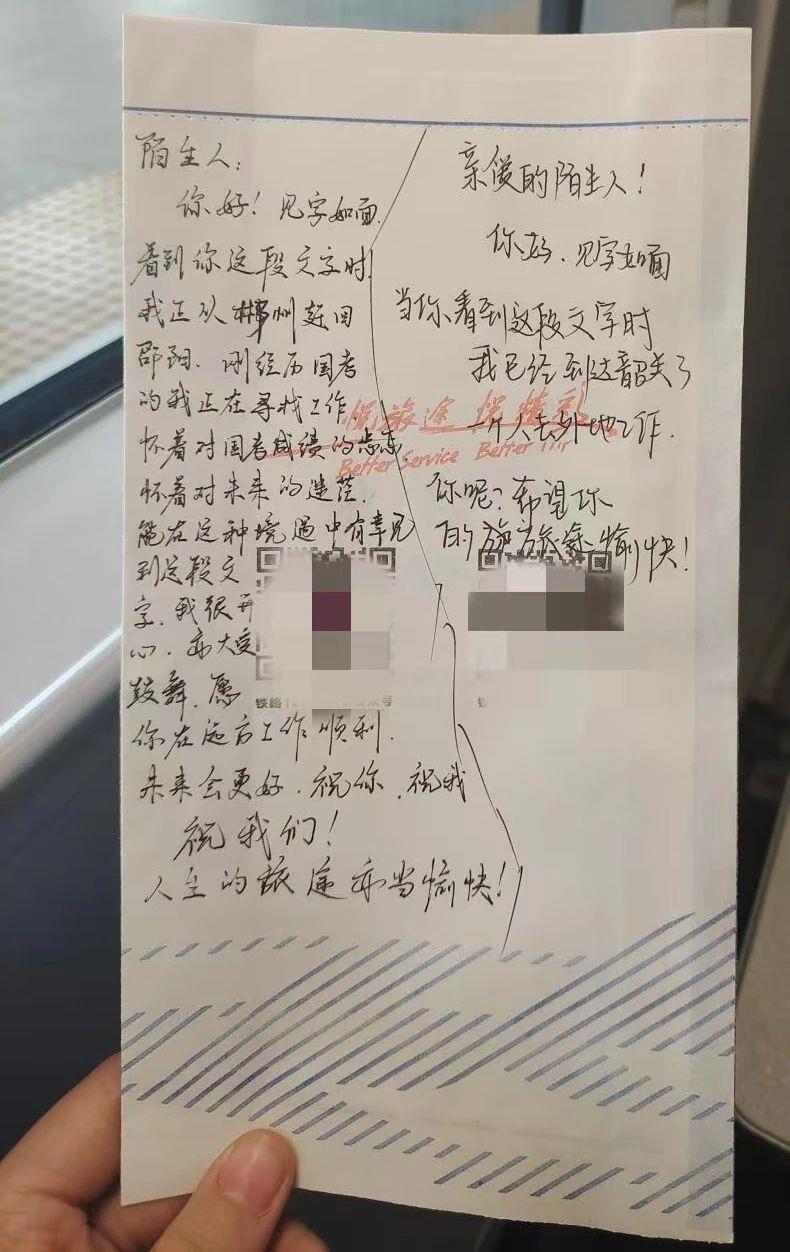 陌生人:
你好! 见字如面.
看到你这段文字时.
我正从郴州赶回
邵阳. 刚经历国考
的我正在寻找工作.
怀着对国考成绩的忐忑.
怀着对未来的迷茫.
能在这种境遇中有幸见
到这段文
字. 我很开
心. 亦大受
鼓舞. 愿
你在远方工作顺利.
未来会更好. 祝你. 祝我
祝我们!
人生的旅途亦当愉快!
亲爱的陌生人!
你好. 见字如面
当你看到这段文字时
我已经到达韶关了
一个人去外地工作.
你呢? 希望你
的旅途愉快!
悦旅途 悦精彩
Better Service Better
铁路12
众号